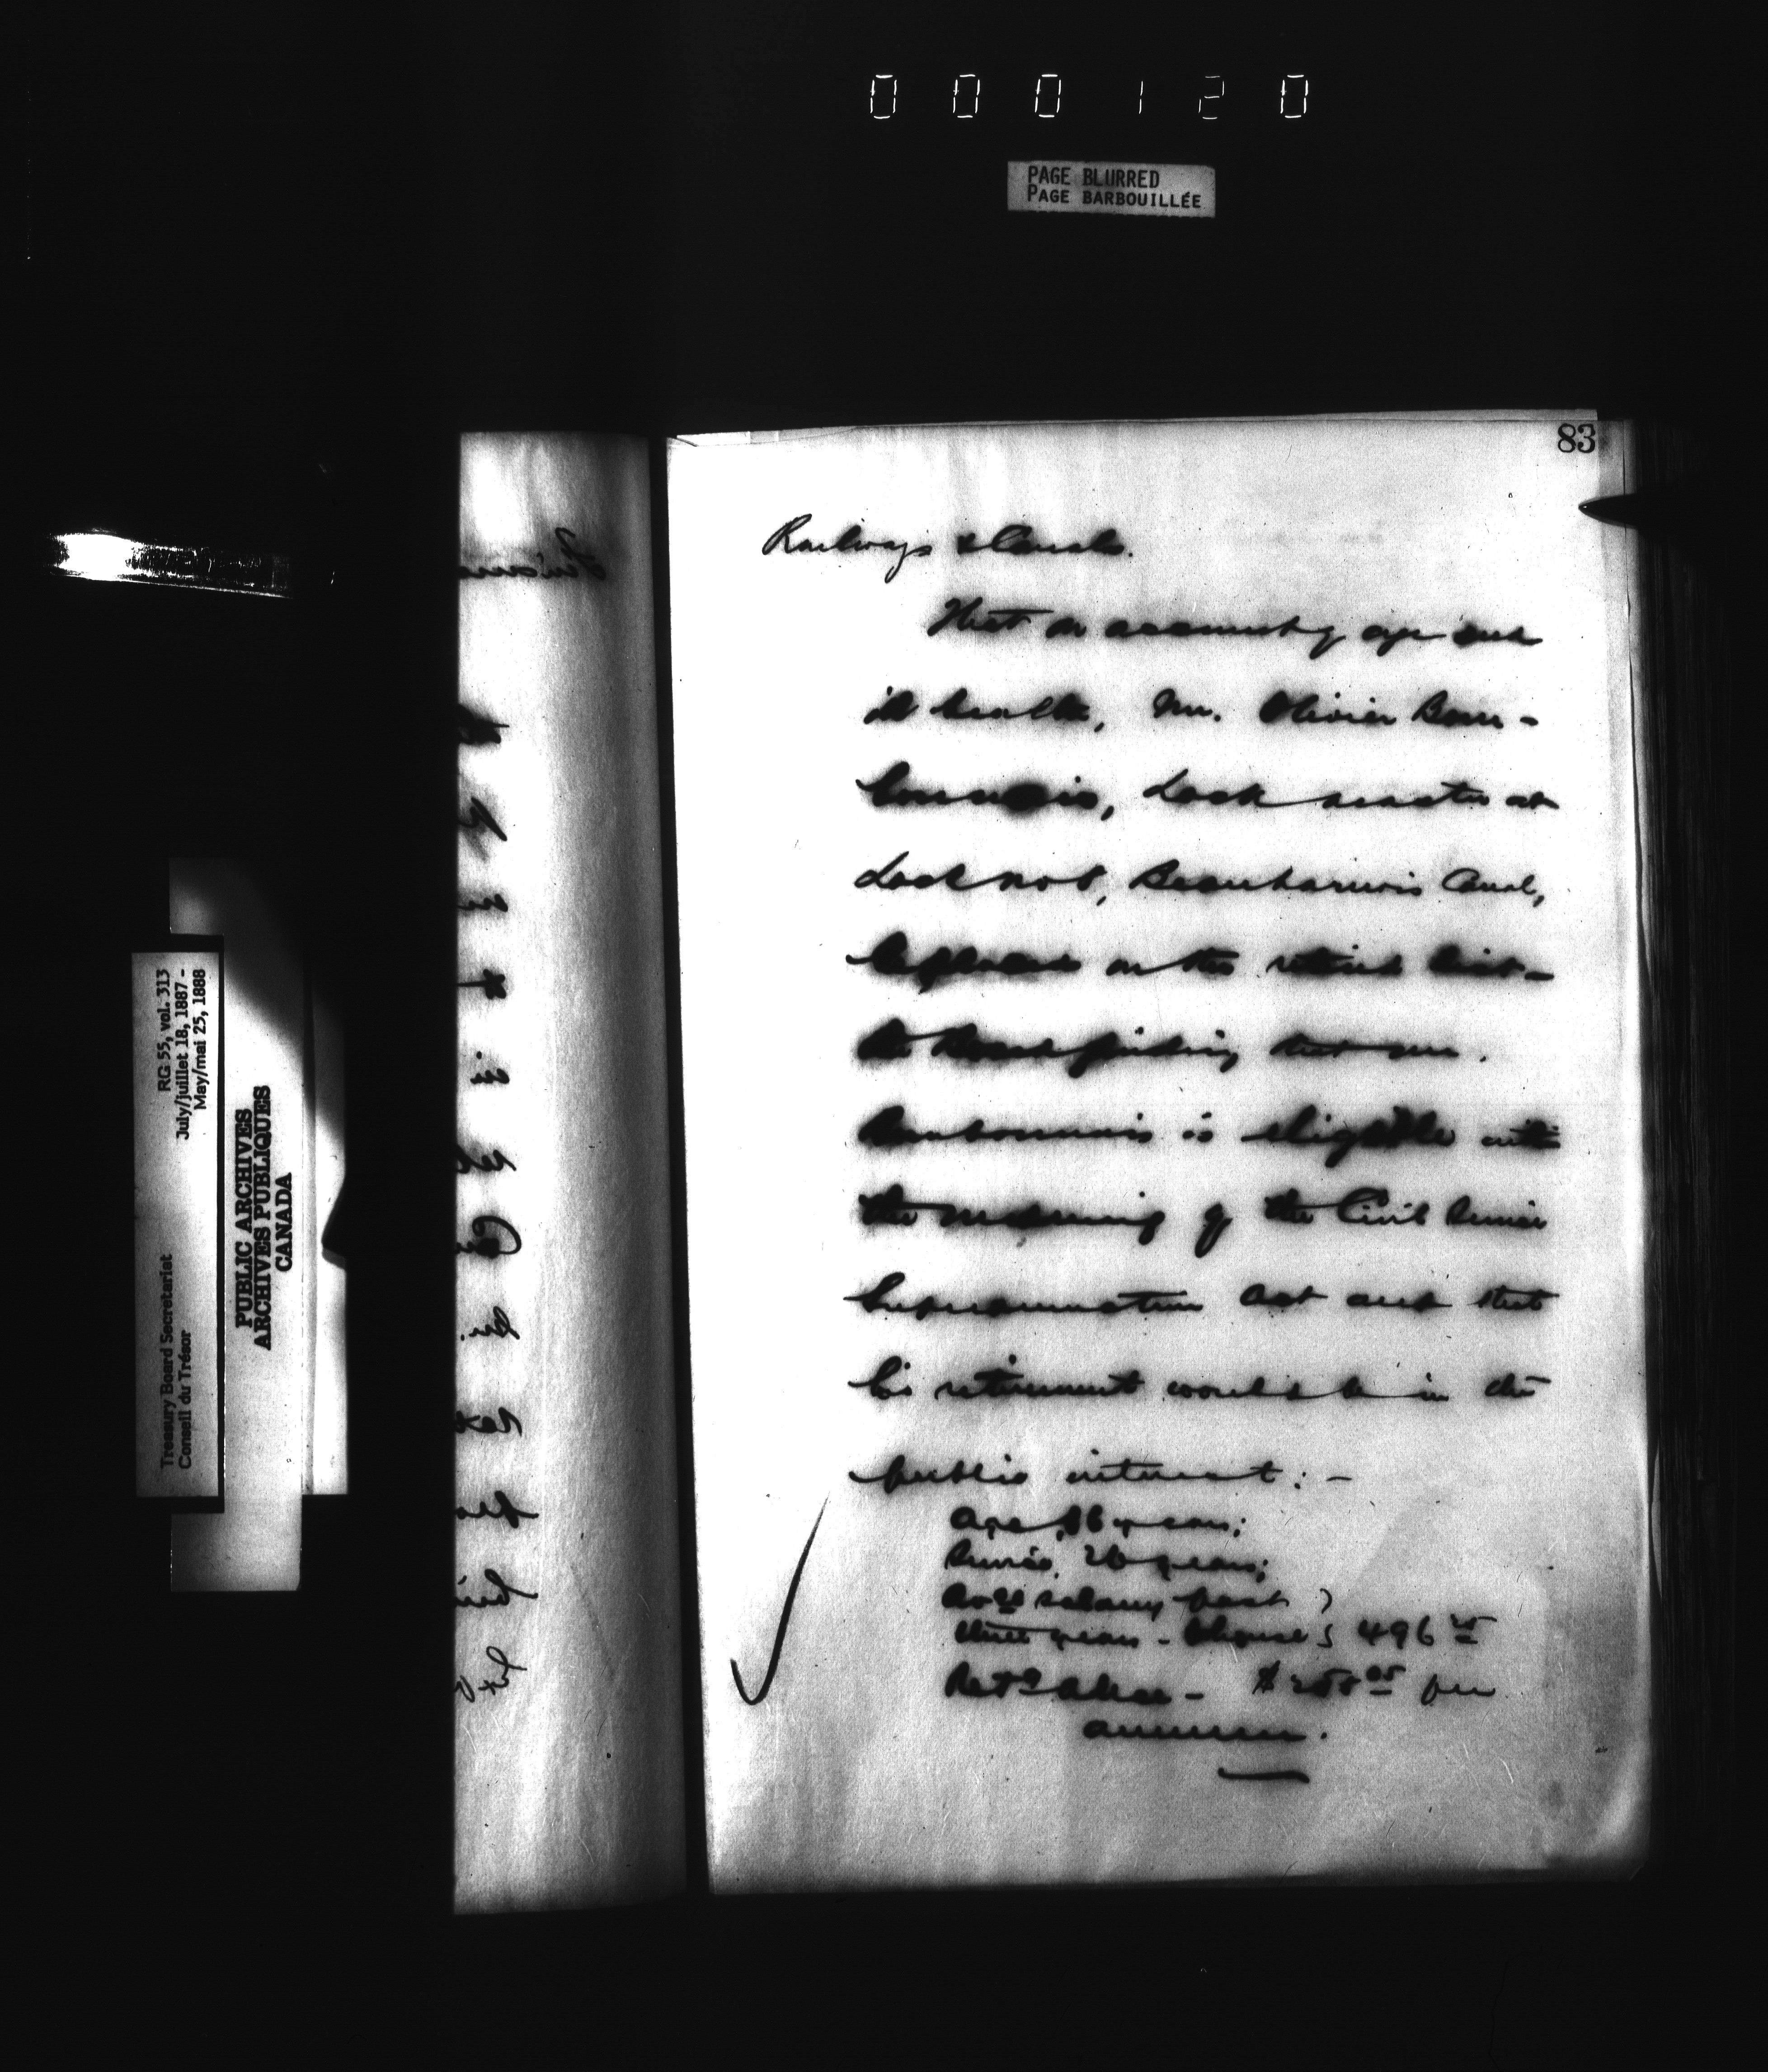 000120
PAGE BLURRED
PAGE BARBOUILLÉE
83
Railways & Canals.
That on account of age and
ill health, Mr. Olivier Bour-
bonnais, Lock master at
Lock No 8, Beauharnois Canal,
be placed on the retired list -
the Board finding that Mr.
Bourbonnais is eligible within
the meaning of the Civil Service
Superannuation Act and that
his retirement would be in the
public interest: -
Age, 66 years;
Service, 26 years;
Av'ge salary past
three years - & house 496
Ret'g Allce - $ 258 05 per
annum.
RG 55, vol. 313
July/juillet 18, 1887 -
May/mai 25, 1888
Treasury Board Secretariat
Conseil du Trésor
PUBLIC ARCHIVES
ARCHIVES PUBLIQUES
CANADA